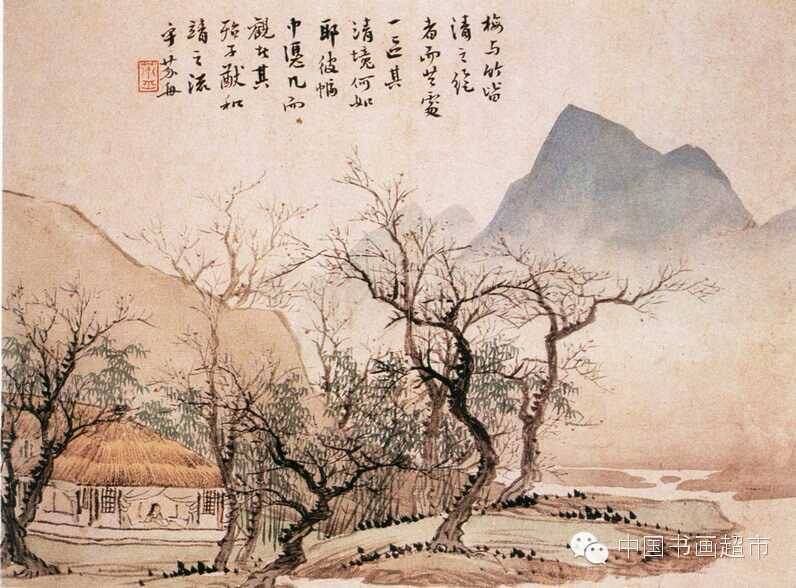 梅与竹皆
清之絕
者而共處
一區其
清境何如
耶彼幅
巾隱几而
觀者其
殆子猷和
靖之流
乎
中国书画超市